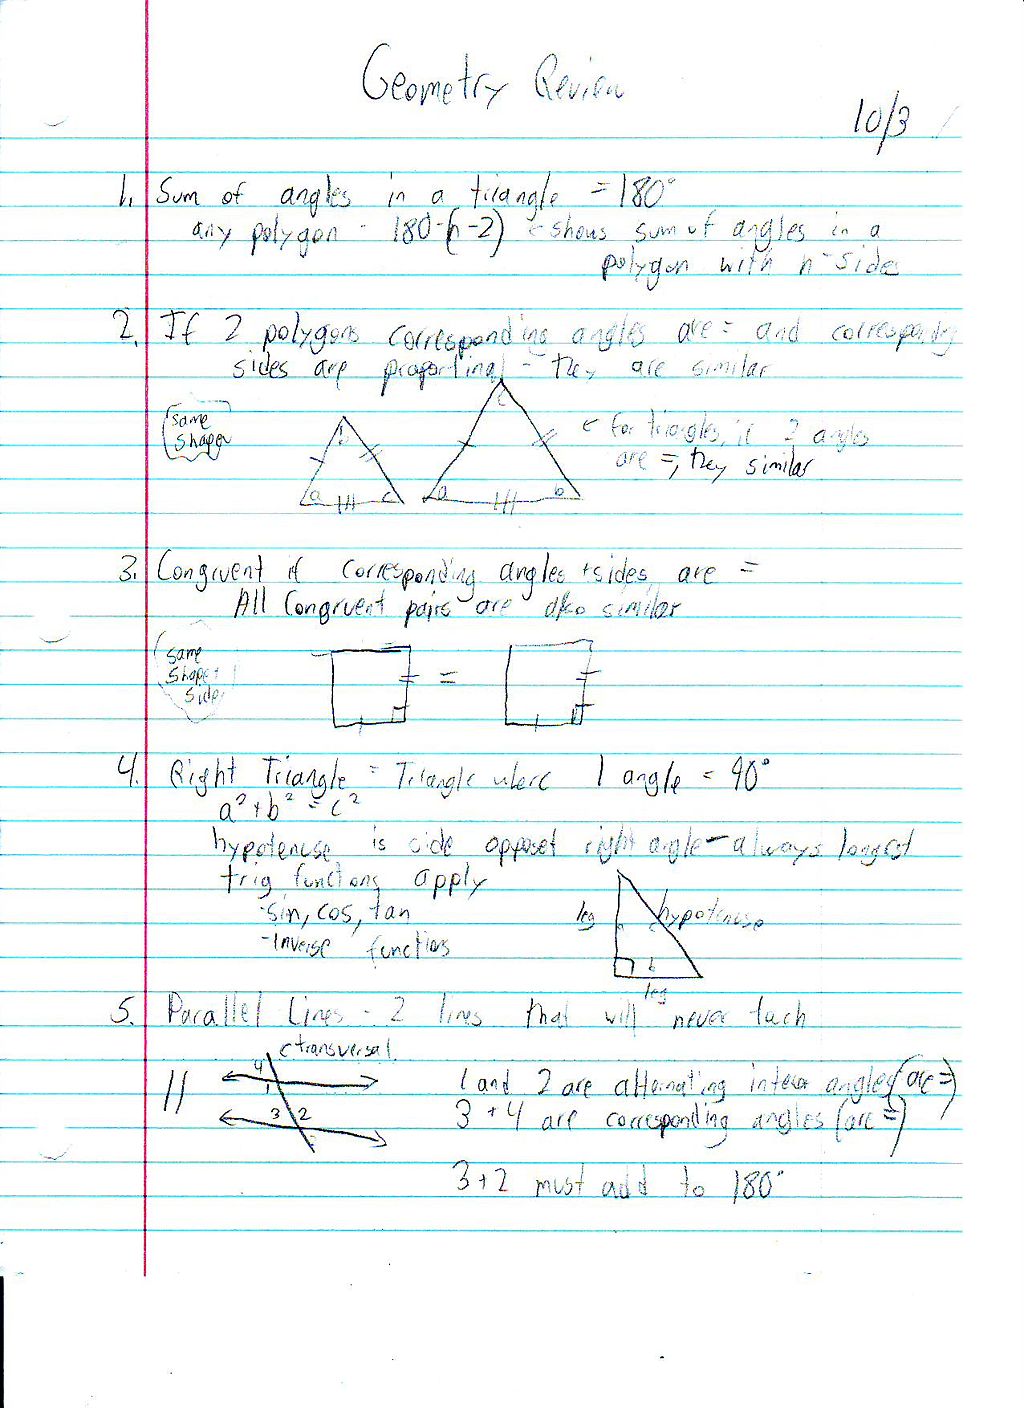 Geometry Review
10/3
1. Sum of angles in a triangle = 180°
any polygon - 180·(n-2) ← shows sum of angles in a
polygon with n-sides
2. If 2 polygons corresponding angles are = and corresponding
sides are proportinal - they are similar
same
shape
b
a c
c
a b
← for triangles, if 2 angles
are =, they similar
3. Congruent if corresponding angles + sides are =
All Congruent pairs are also similar
same
shape +
side
=
4. Right Triangle = Triangle where 1 angle = 90°
a² + b² = c²
hypotenuse is side opposet right angle - always longest
trig functions apply
-sin, cos, tan
-inverse functions
leg
a c
hypotenuse
b
leg
5. Parallel Lines - 2 lines that will never tuch
← transversal
//
4
1
3 2
1 and 2 are alternating interior angles (are =)
3 + 4 are corresponding angles (are =)
3 + 2 must add to 180°